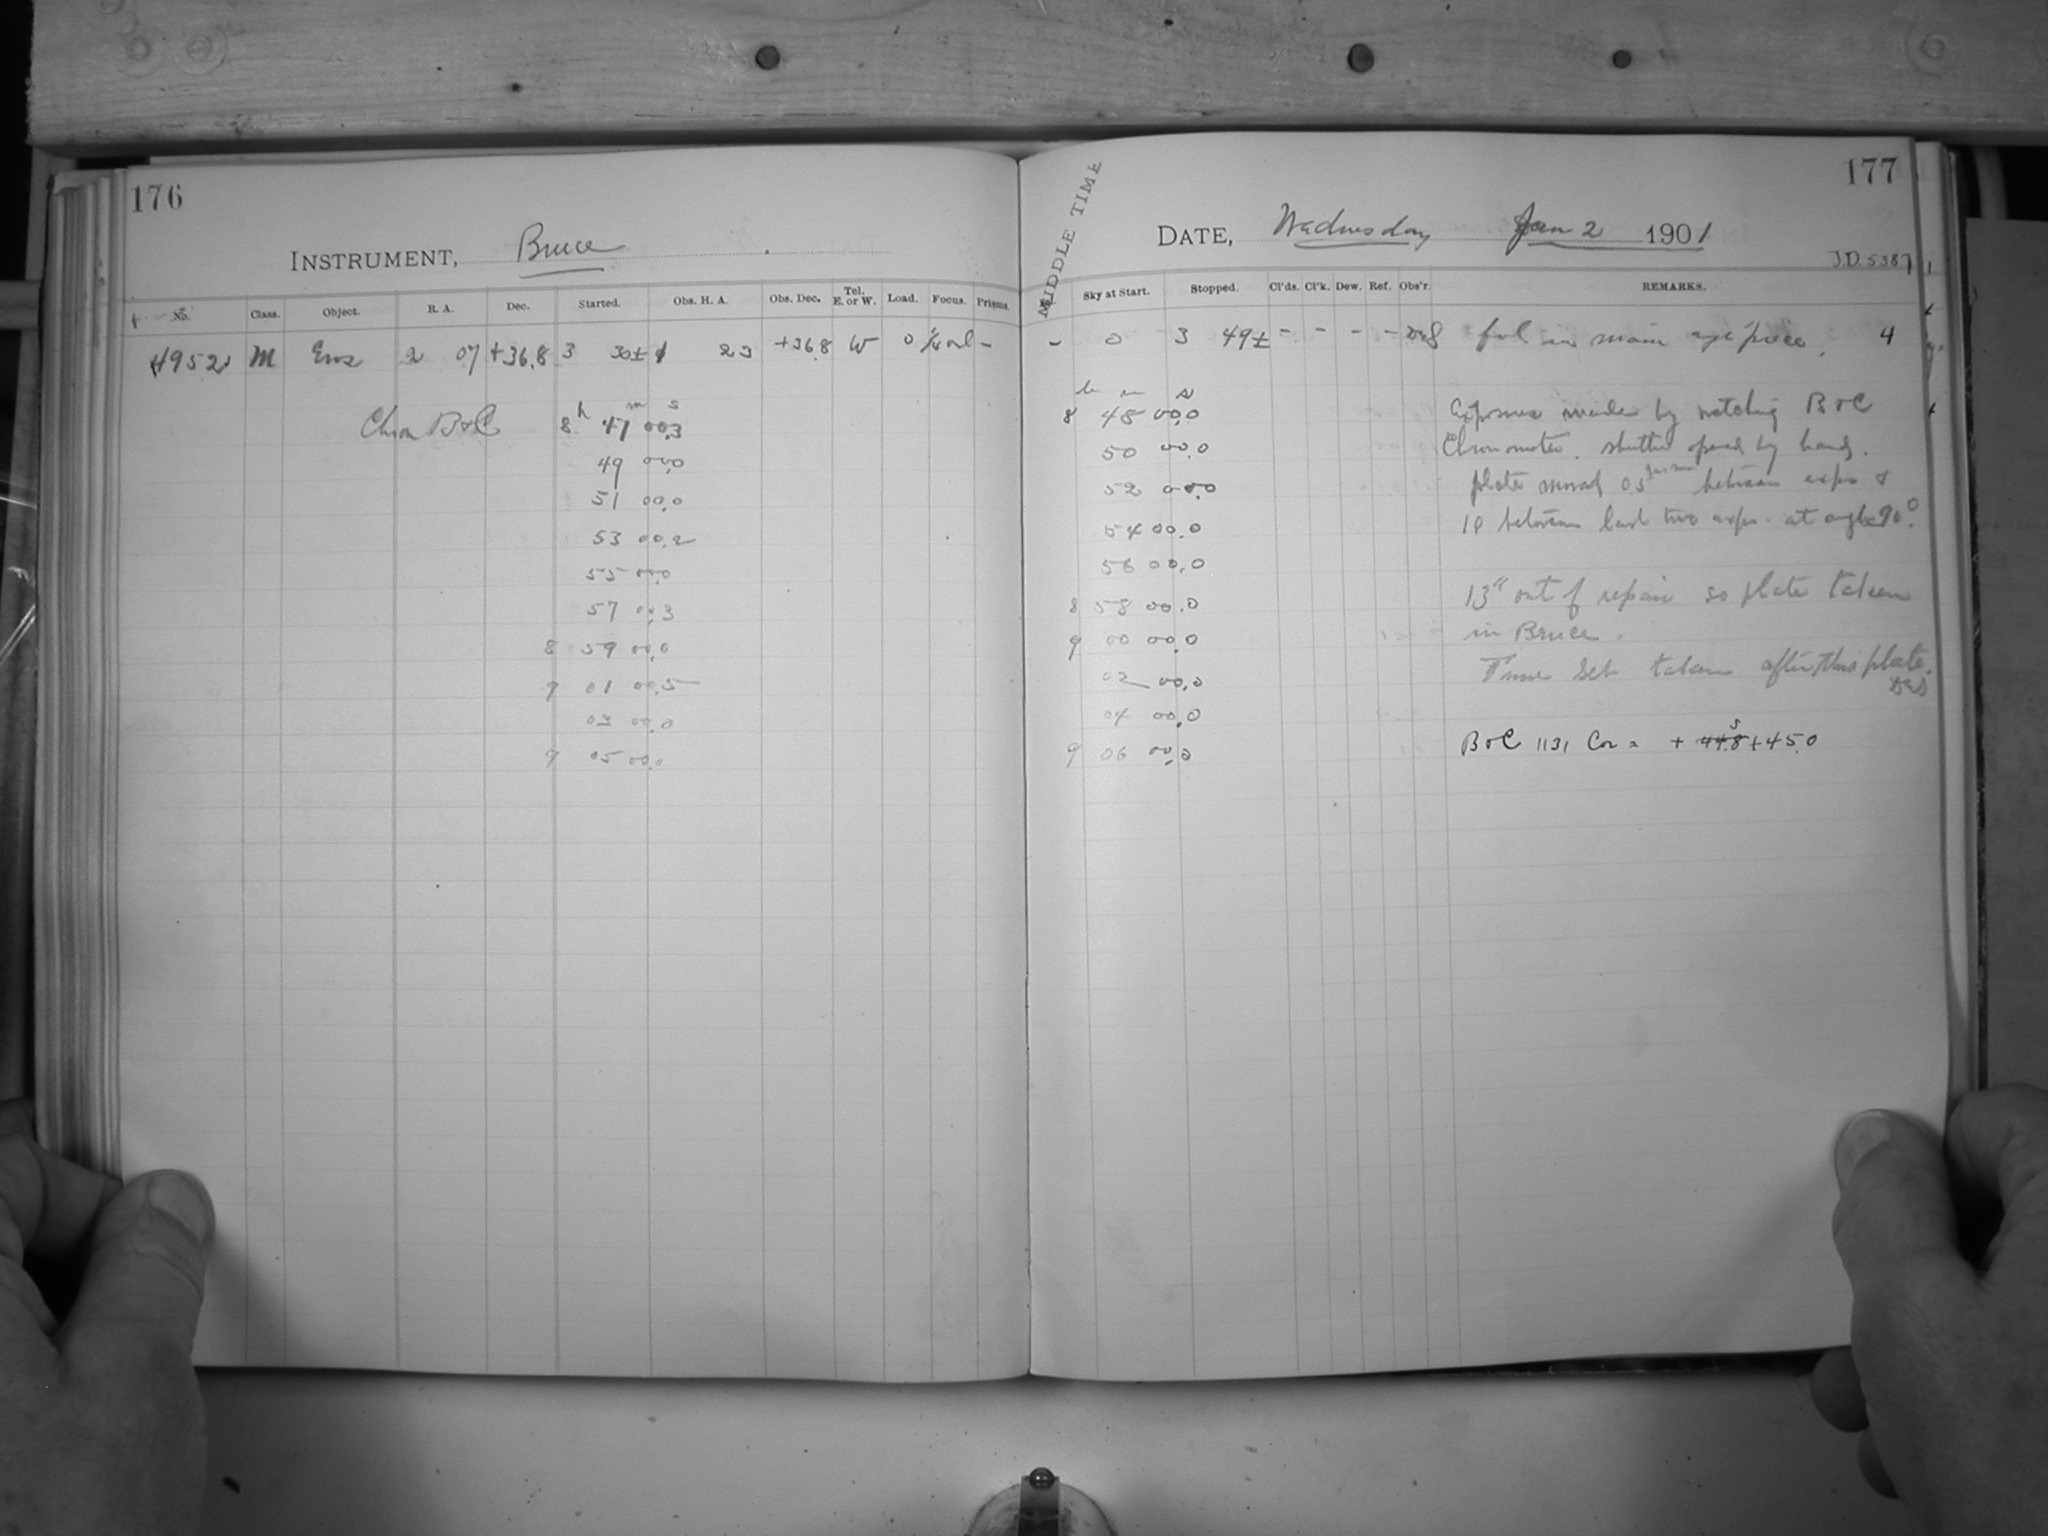 176
INSTRUMENT, Bruce
No. Class. Object. R. A. Dec. Started. Obs. H. A. Obs. Dec. Tel. E. or W. Load. Focus. Prisms.
4952 M Eros 2 07 +36.8 3 30± 1 23 +36.8 W 0
Chron B&C 8h 47m 00.3s
49 00.0
51 00.0
53 00.2
55 00.0
57 00.3
8 59 00.0
9 01 00.5
03 00.0
9 05 00.0
177
MIDDLE TIME
DATE, Wednesday Jan 2 1901
J.D. 5387
Sky at Start. Stopped. Cl'ds. Cl'k. Dew. Ref. Obs'r. REMARKS.
- 0 3 49± - - - - fol in main eye piece. 4
h m s
8 48 00.0
50 00.0
52 00.0
54 00.0
56 00.0
8 58 00.0
9 00 00.0
02 00.0
04 00.0
9 06 00.0
Exposures made by watching B&C
Chronometer. shutter opened by hand.
plate moved 05 between exps &
10 between last two exps. at angle 90°.
13" out of repair so plate taken
in Bruce.
Time Set taken after this plate.
B&C 1131 Cor = + 44.8s +45.0